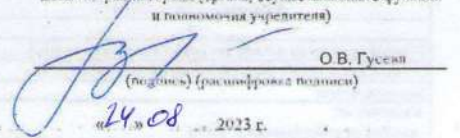 и полномочия учредителя)
О.В. Гусева
(подпись) (расшифровка подписи)
«24» 08 2023 г.